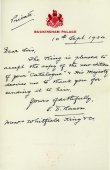 Private
BUCKINGHAM PALACE
10th Sept 1924
Dear Sir,
The King is pleased to
accept the copy of the new edition
of your Catalogue & His Majesty
desires me to thank you for
sending it to him.
Yours faithfully,
Bacon
Messrs Whitfield King & Co